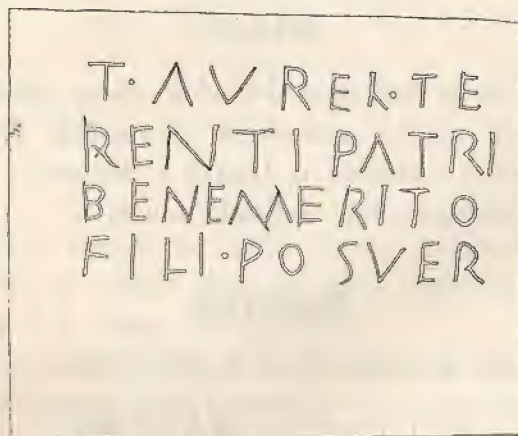 T· AVREL·TE
RENTI PATRI
BENEMERITO
FILI·POSVER